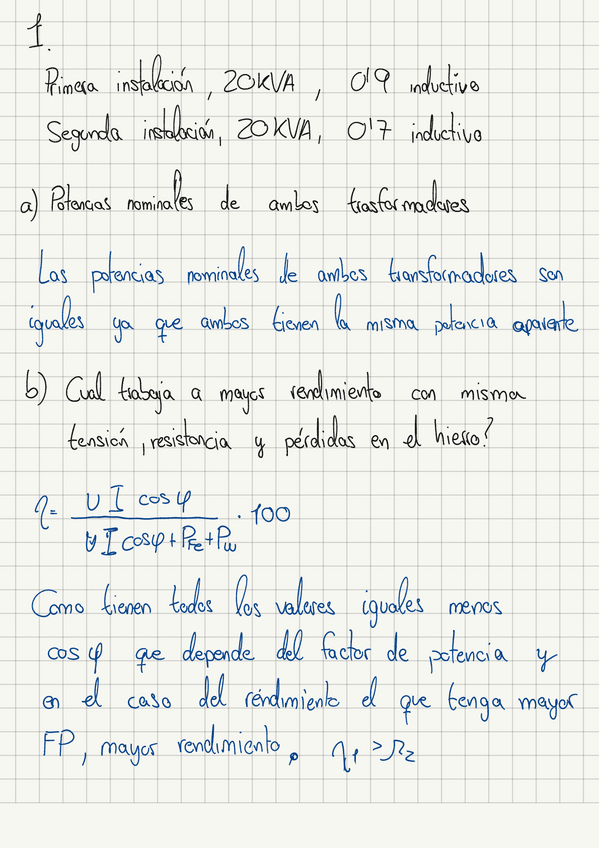 1.
Primera instalación, 20KVA, 0'9 inductivo
Segunda instalación, 20KVA, 0'7 inductivo
a) Potencias nominales de ambos trasformadores
Las potencias nominales de ambos transformadores son
iguales ya que ambos tienen la misma potencia aparente
b) Cual trabaja a mayor rendimiento con misma
tensión, resistencia y pérdidas en el hierro?
η = U I cosφ / U I cosφ + PFe + Pcu · 100
Como tienen todos los valores iguales menos
cos φ que depende del factor de potencia y
en el caso del rendimiento el que tenga mayor
FP, mayor rendimiento. η1 > η2